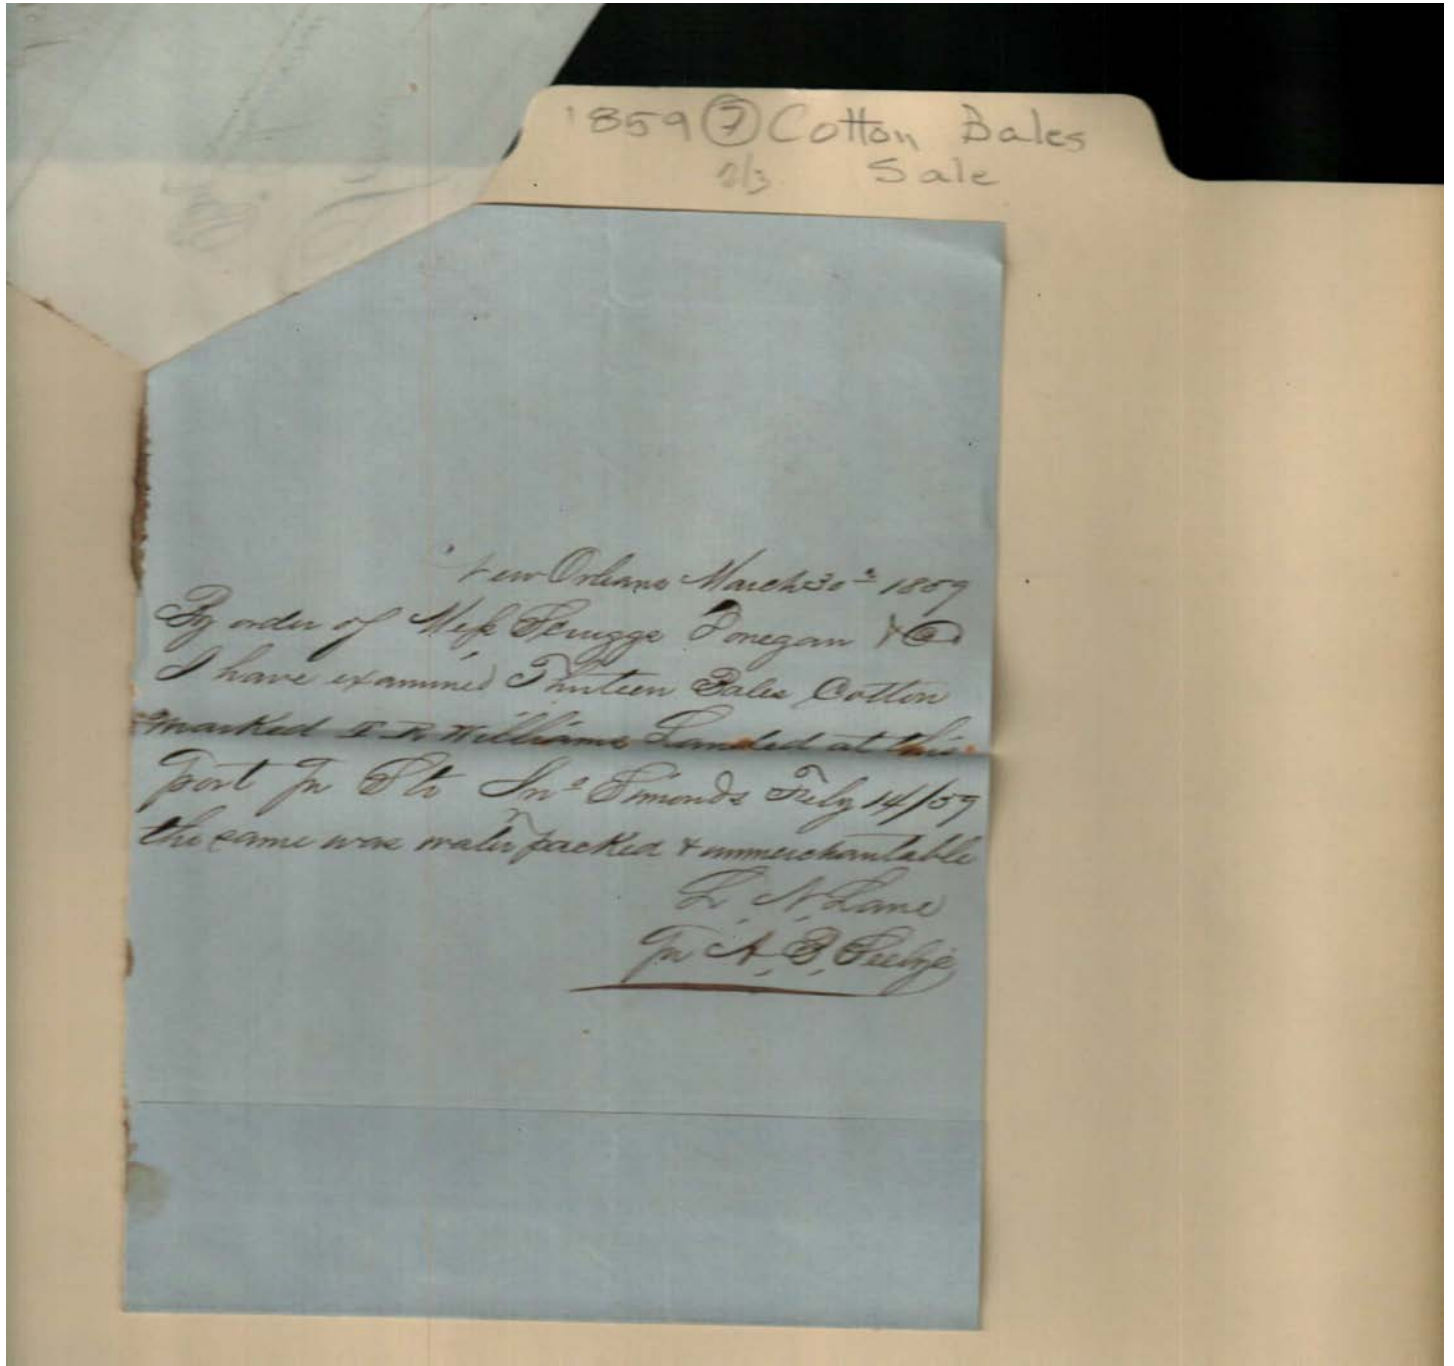 1859 ⑦ Cotton Bales
2/3 Sale
New Orleans March 30th 1859
By order of Mess Scruggs Donegan & Co
I have examined Thirteen Bales Cotton
marked I. R. Williams Landed at this
port pr Str Jno Simonds Feby 14/59
the same was water packed & unmerchantable
L. N. Lane
pr A. B.